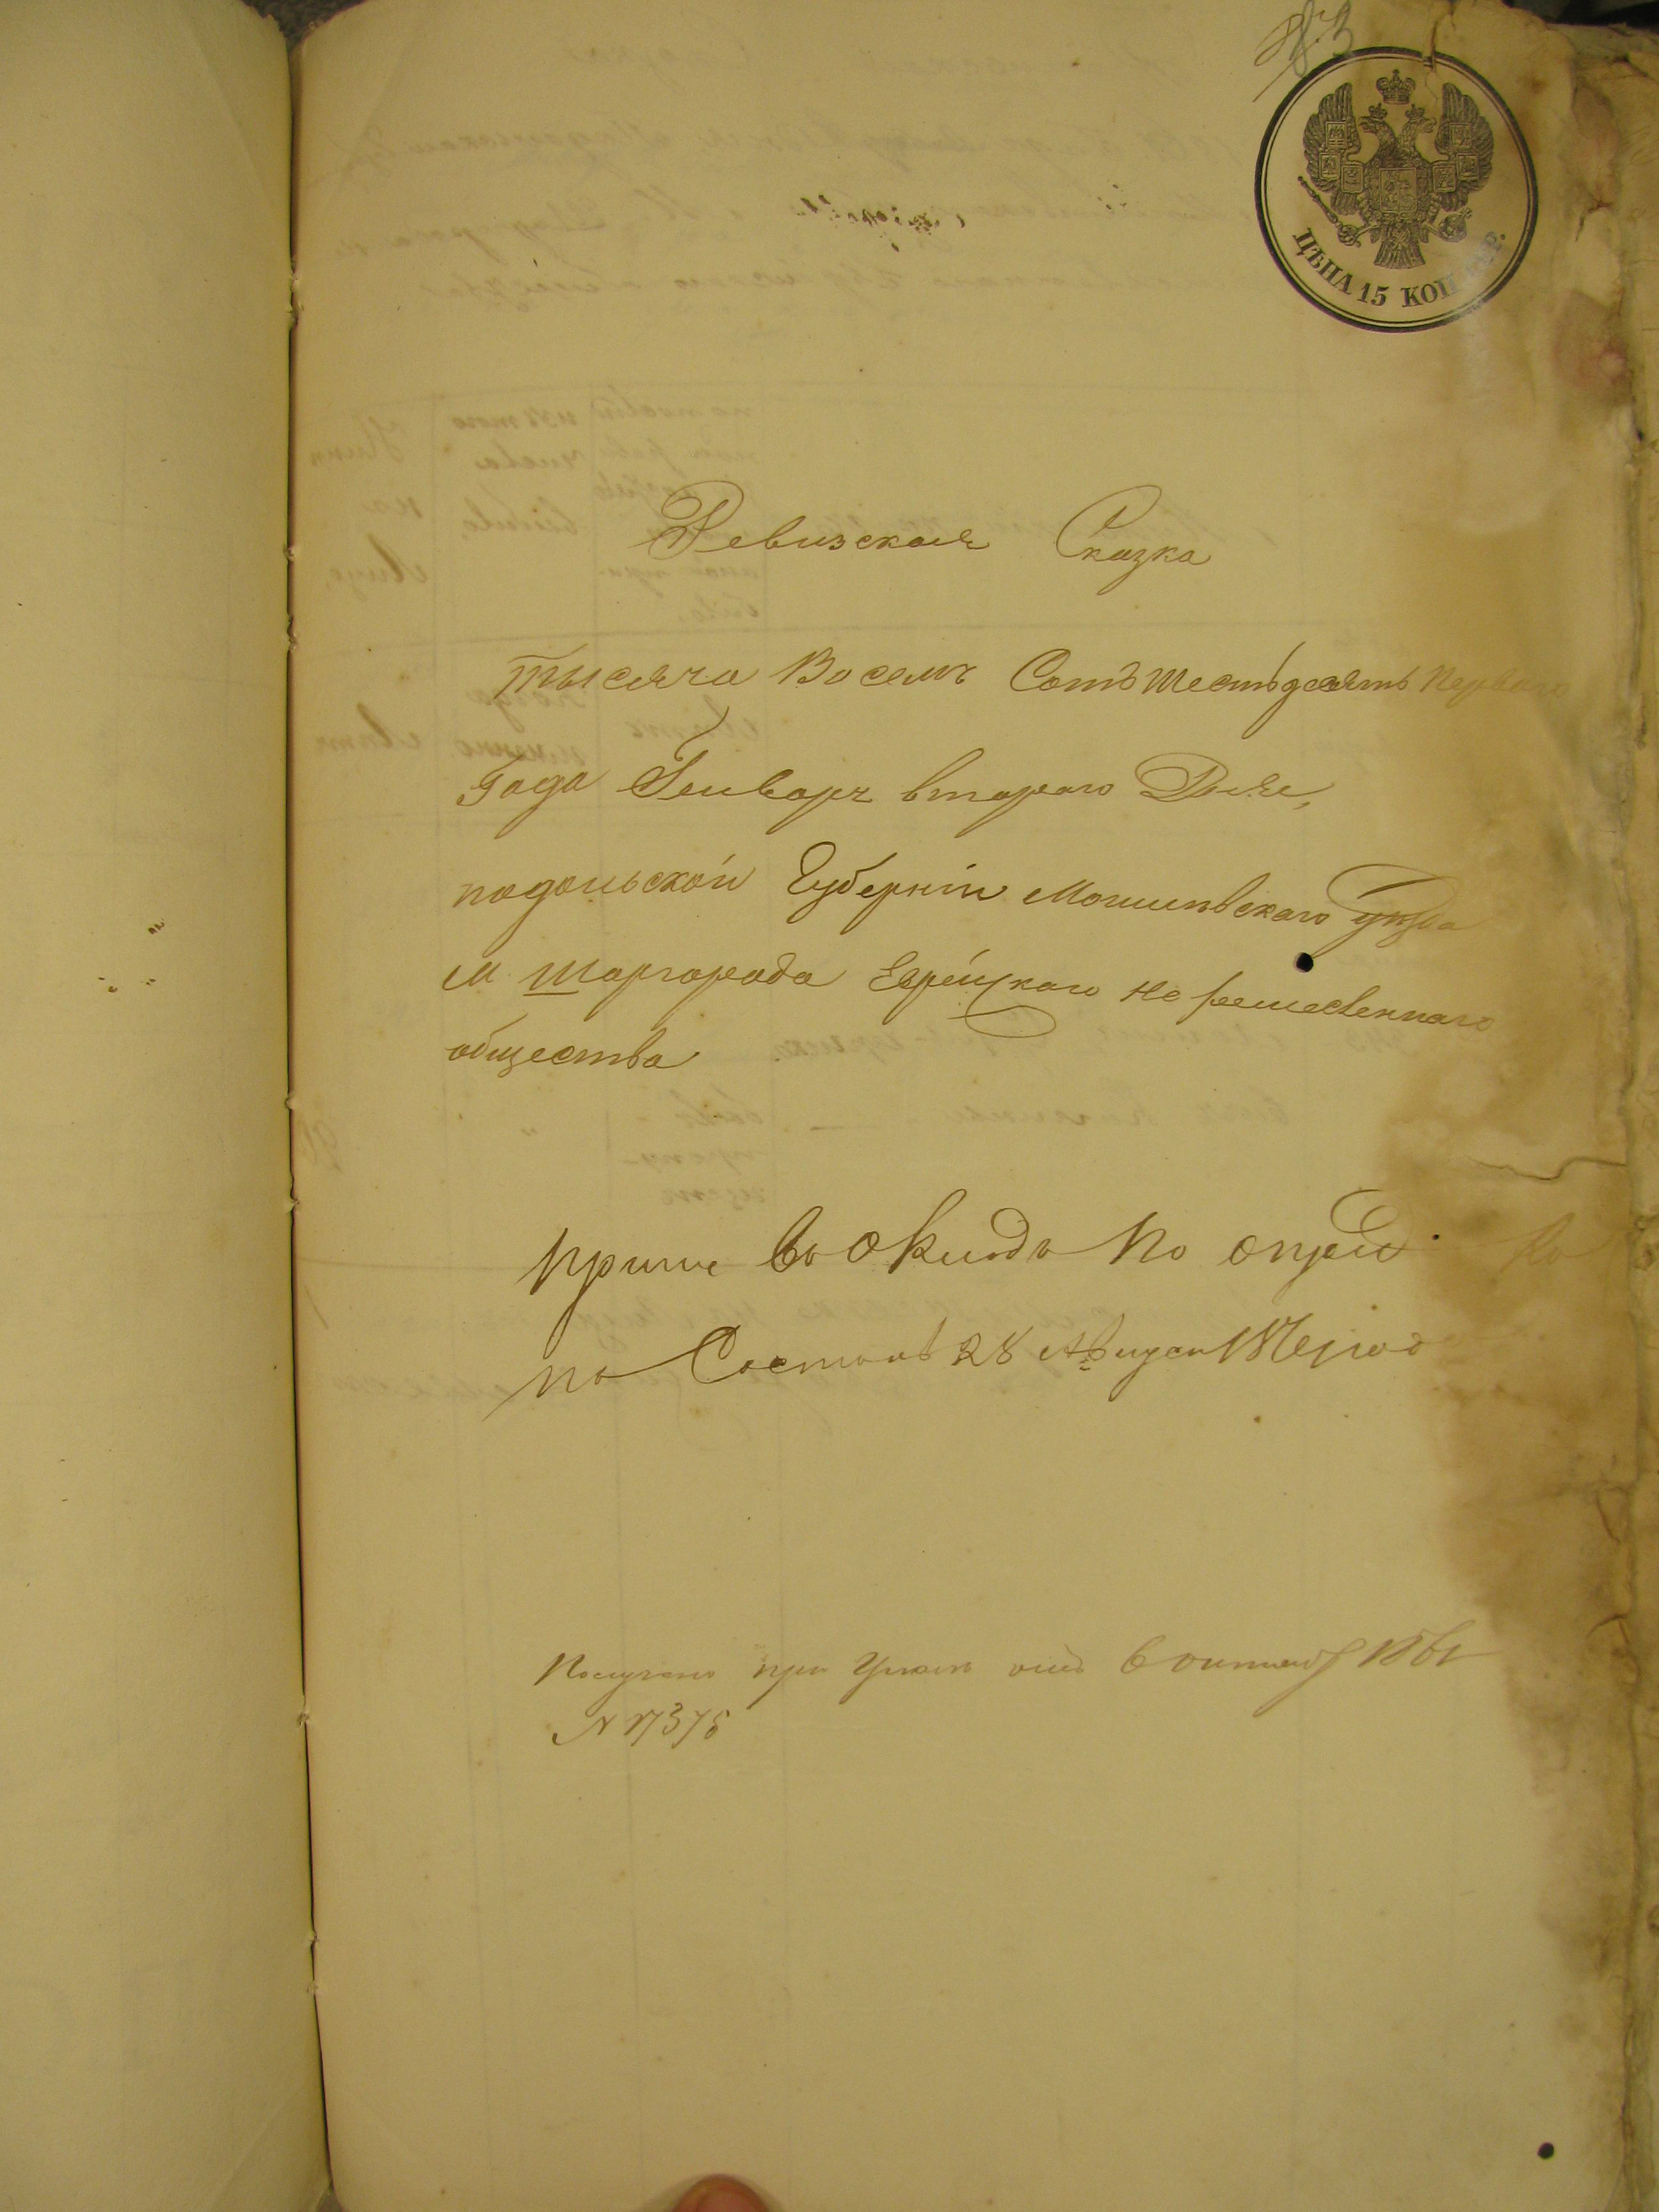 ЦѢНА 15 КОП. СЕР.
Ревизская Сказка
тысяча Восемъ Сотъ Шестьдесятъ Первого
Года Генваря втораго Дня,
подольской Губерніи Могилевскаго уезда
м Шаргорода Еврейскаго не ремесленнаго
общества
въ Окладъ По опред
28 Августа
Получено при Указе отъ 6 октяб 1861
N 17375